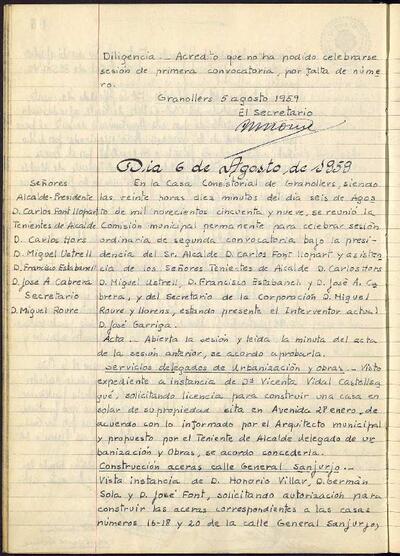 Diligencia - Acredito que no ha podido celebrarse
sesión de primera convocatoria, por falta de núme
ro.
Granollers 5 agosto 1959
El Secretario
Dia 6 de Agosto de 1959
Señores
Alcalde-Presidente
D. Carlos Font llopart
Tenientes de Alcalde
D. Carlos Hors
D. Miguel Ustrell
D. Francisco Estabanell
D. Jose A Cabrera
Secretario
D. Miguel Roure
En la Casa Consistorial de Granollers, siendo
las veinte horas diez minutos del dia seis de Agos
to de mil novecientos cincuenta y nueve, se reunió la
Comisión municipal permanente para celebrar sesión
ordinaria de segunda convocatoria bajo la presi-
dencia del Sr. Alcalde D. Carlos Font llopart y asisten
cia de los Señores Tenientes de Alcalde D. Carlos Hors
D. Miguel Ustrell, D. Francisco Estabanell y D. José A. Ca
brera, y del Secretario de la Corporación D. Miguel
Roure y llorens, estando presente el Interventor actual
D. José Garriga.
Acta - Abierta la sesión y leida la minuta del acta
de la sesión anterior, se acordo aprobarla.
Servicios delegados de Urbanización y obras. - Visto
expediente a instancia de Dª Vicenta Vidal Castellse
gué, solicitando licencia para construir una casa en
solar de su propiedad sita en Avenida 28 enero, de
acuerdo con lo informado por el Arquitecto municipal
y propuesto por el Teniente de Alcalde delegado de ur
banización y Obras, se acordo concederla.
Construcción aceras calle General Sanjurjo. -
Vista instancia de D. Honorio Villar, D. Germán
Sola y D. José Font, solicitando autorización para
construir las aceras correspondientes a las casas
números 16-18 y 20 de la calle General Sanjurjo,